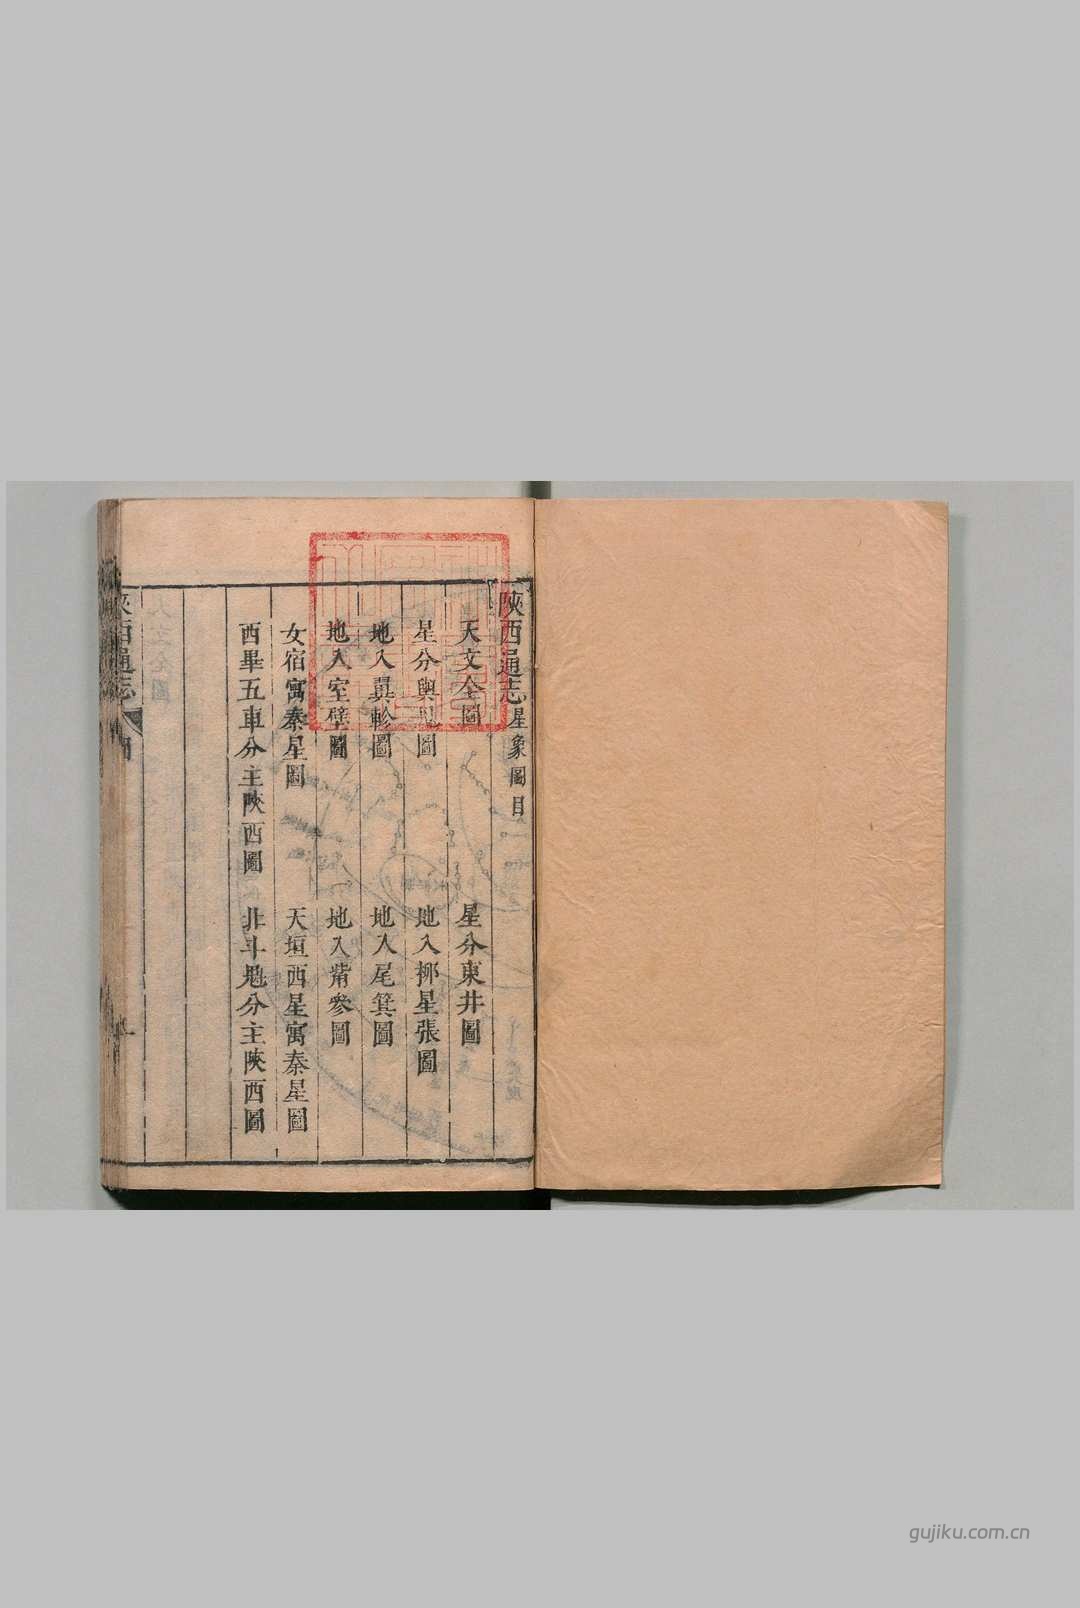 陝西通志星象圖目
天文全圖 星分東井圖
星分輿鬼圖 地入柳星張圖
地入翼軫圖 地入尾箕圖
地入室壁圖 地入觜參圖
女宿寓秦星圖 天垣西星寓秦星圖
西畢五車分主陝西圖 北斗魁分主陝西圖
陝西通志
gujiku.com.cn